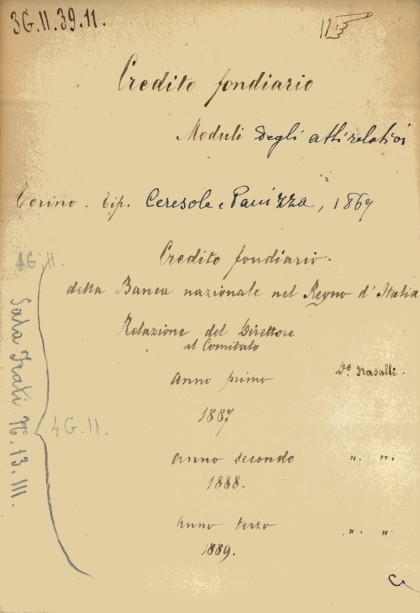 3G.II.39.11.
Credito fondiario
Moduli degli atti relativi
Torino. tip. Ceresole e Panizza, 1867
4G.II.
Credito fondiario.
della Banca nazionale nel Regno d'Italia
Relazione del Direttore
al Comitato
Anno primo
1887
Anno secondo „ „.
1888.
Anno terzo „ „
1889.
Sala
4G.II.